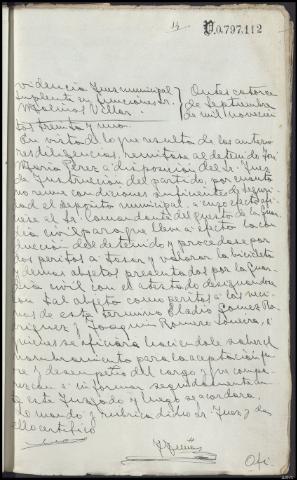 14 P.0.797.112
videncia Juez municipal
suplente en funciones Sr.
Molinos Villar.
Antes catorce
de Septiembre
de mil novecien
tos treinta y uno.
En virtud de lo que resulta de las anterio
res diligencias, remítase al detenido José
María Pérez a disposición del Sr. Juez
de Instrucción del partido, por cuanto
no reune condiciones suficientes de seguri
dad el depósito municipal, a cuyo efecto ofi
ciese al Sr. Comandante del puesto de la Guar
dia civil para que lleve a efecto la con
ducción del detenido y procedase por
dos peritos a tasar y valorar la bicicleta
y demas objetos presentados por la Guar
dia civil con el atestado designandose
con tal objeto como peritos a los veci
nos de este termino Eladio Gomez Ro
driguez y Joaquin Romero a
quienes se oficiara haciendole saber el
nombramiento para la aceptacion ju
re y desempeño del cargo y su compa
rezcan a informar seguidamente an
te este Juzgado y luego se acordara.
Lo mando y rubrica dicho Sr. Juez y de
ello certifico
Ofi-